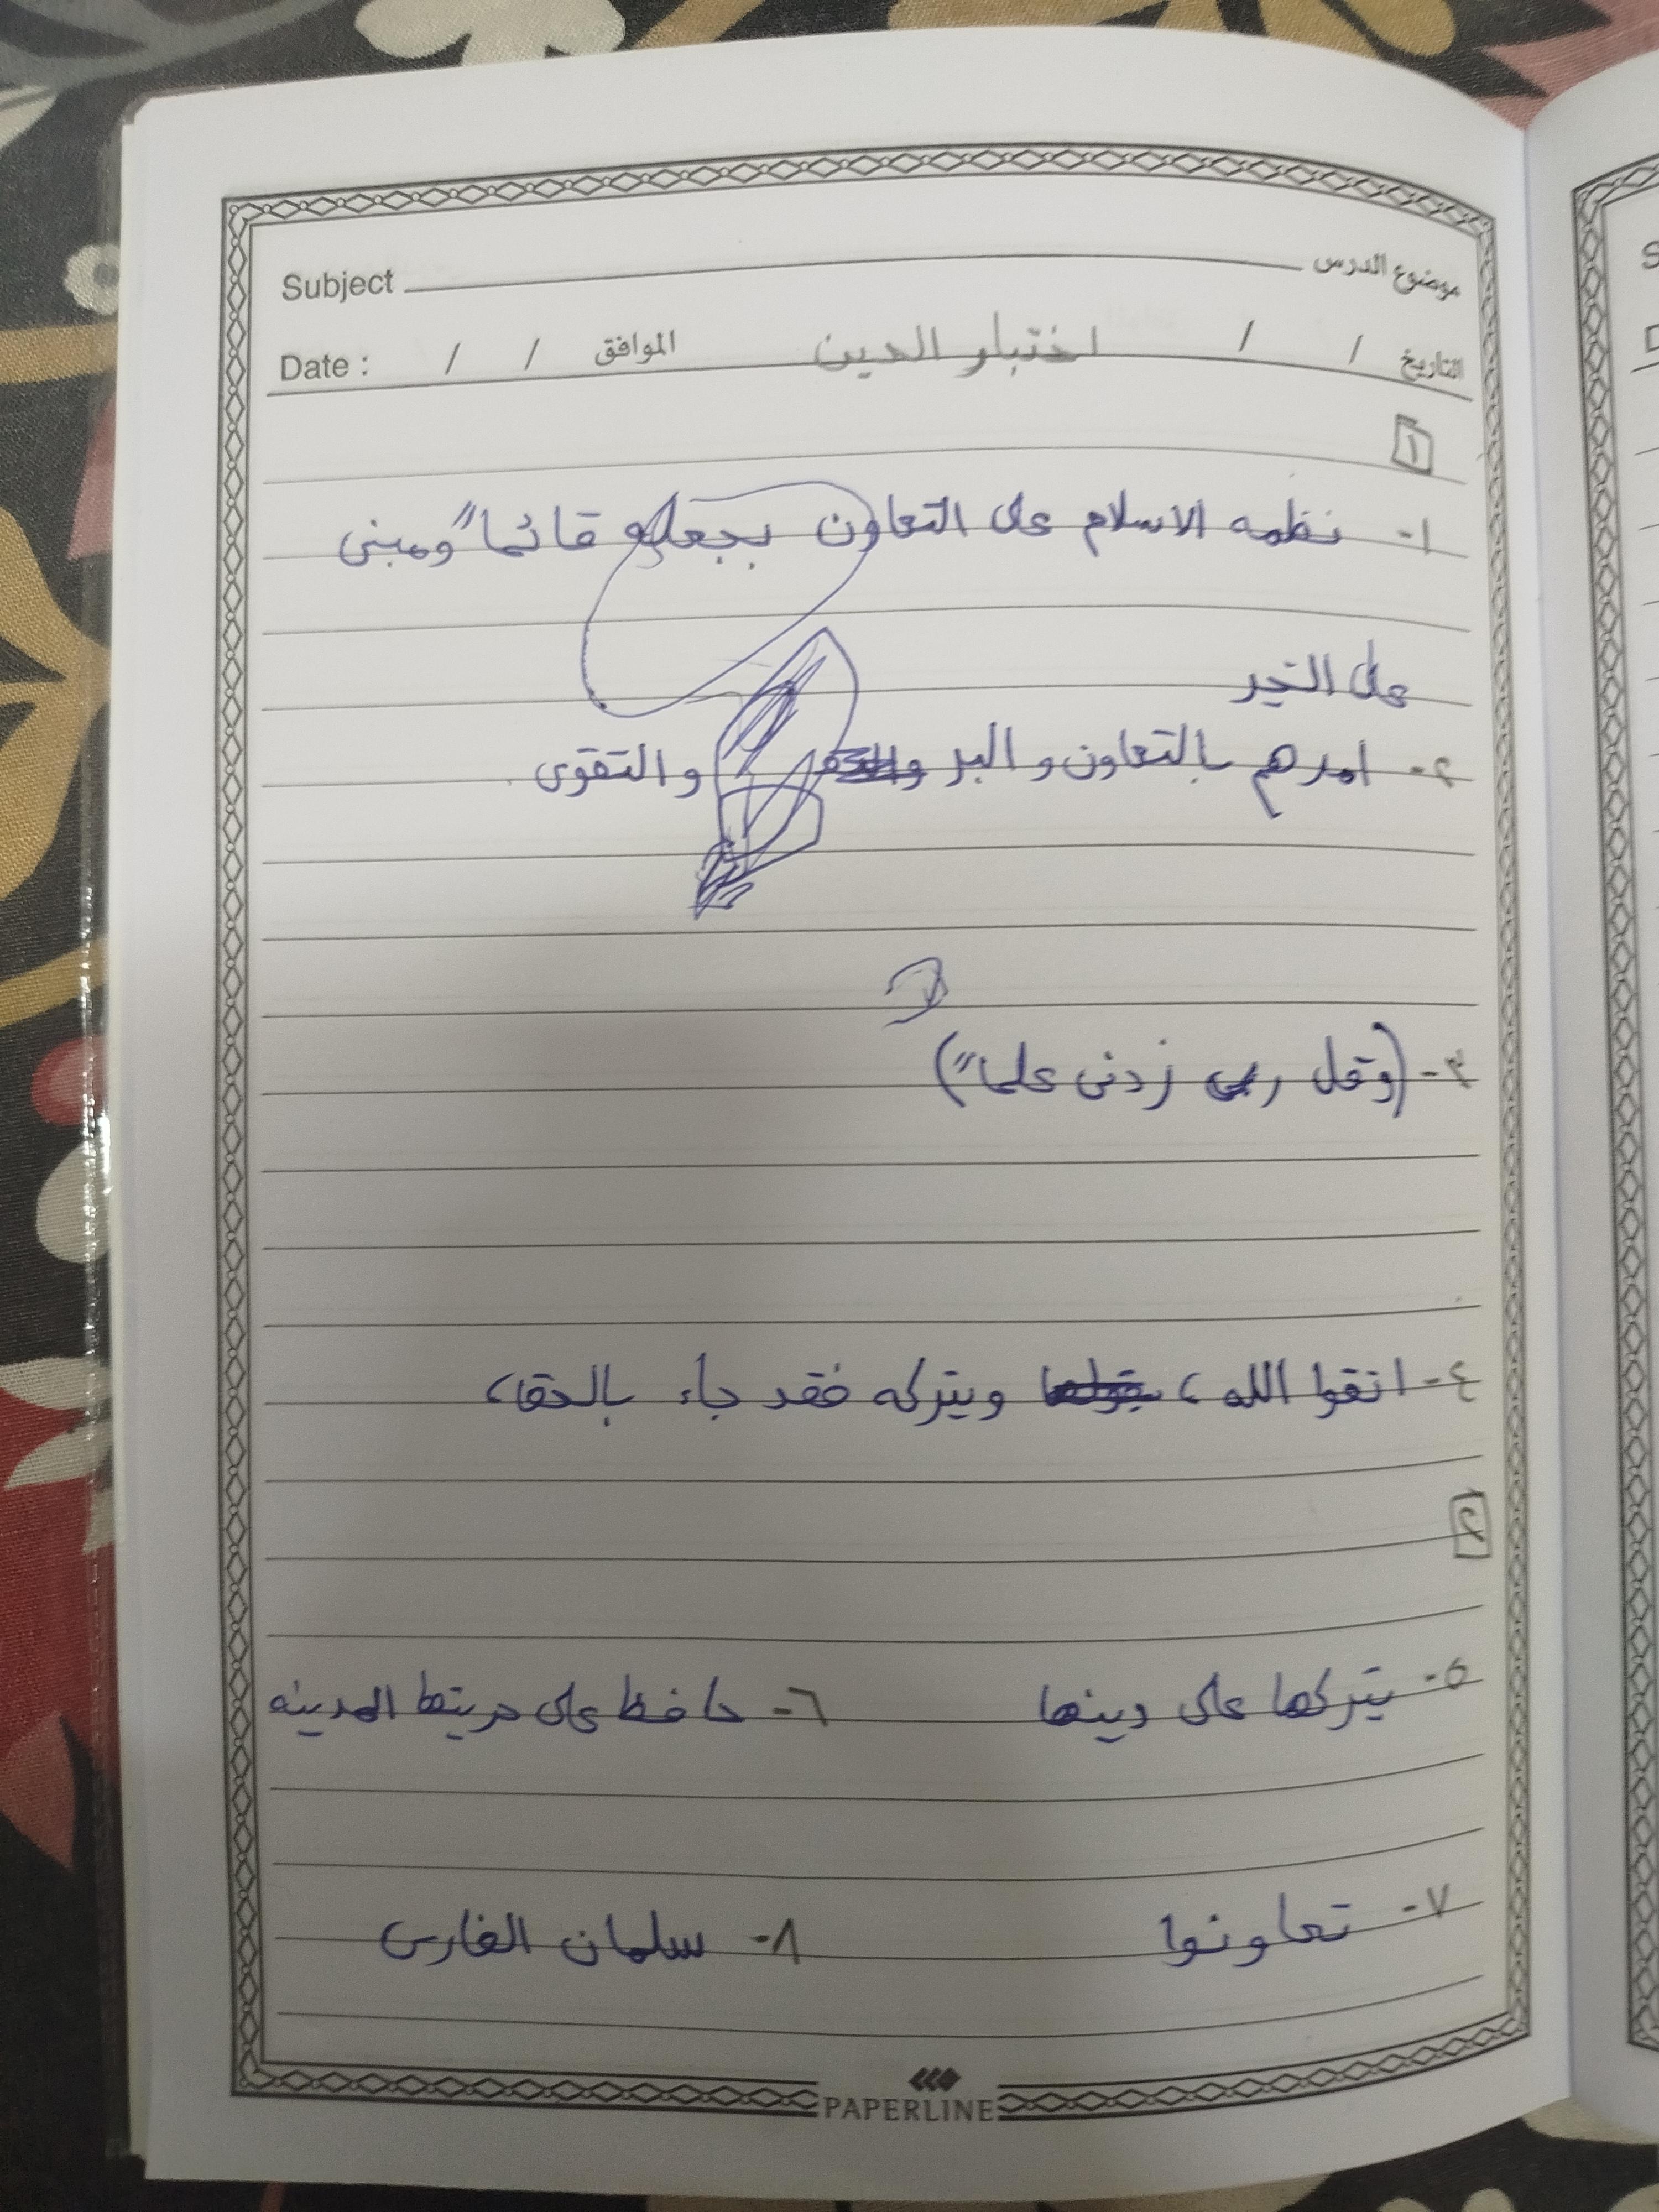 Subject موضوع الدرس
Date : / / الموافق اختبار الدين / / التاريخ
١
١- نظمه الاسلام على التعاون بجعله قائما" ومبنى
على الخير
٢- امرهم بالتعاون و البر و التقوى
٣- (وقل ربى زدنى علما")
٤- اتقوا الله ، ويتركه فقد جاء بالحق،
٢
٥- يتركها على دينها ٦- حافظ على حريتها المدينه
٧- تعاونوا ٨- سلمان الفارسى
PAPERLINE